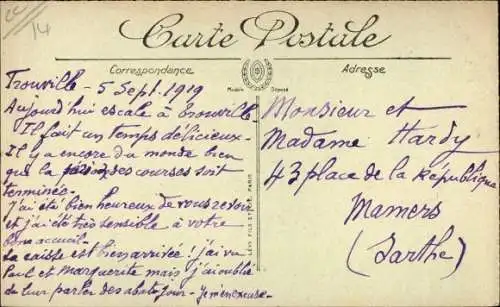 14
Carte Postale
Correspondance
Adresse
Modèle Déposé
LÉVY FILS ET Cie, PARIS
Trouville - 5 Sept. 1919
Aujourd'hui escale à Trouville
Il fait un temps délicieux -
Il y a encore du monde bien
que la saison des courses soit
terminée -
J'ai été bien heureux de vous revoir
et j'ai été très sensible à votre
bon accueil -
La caisse est bien arrivée ! j'ai vu
Paul et Marguerite mais j'ai oublié
de leur parler des abats-jour - Je m'en excuse -
Monsieur et
Madame Hardy
43 place de la République
Mamers
(Sarthe)